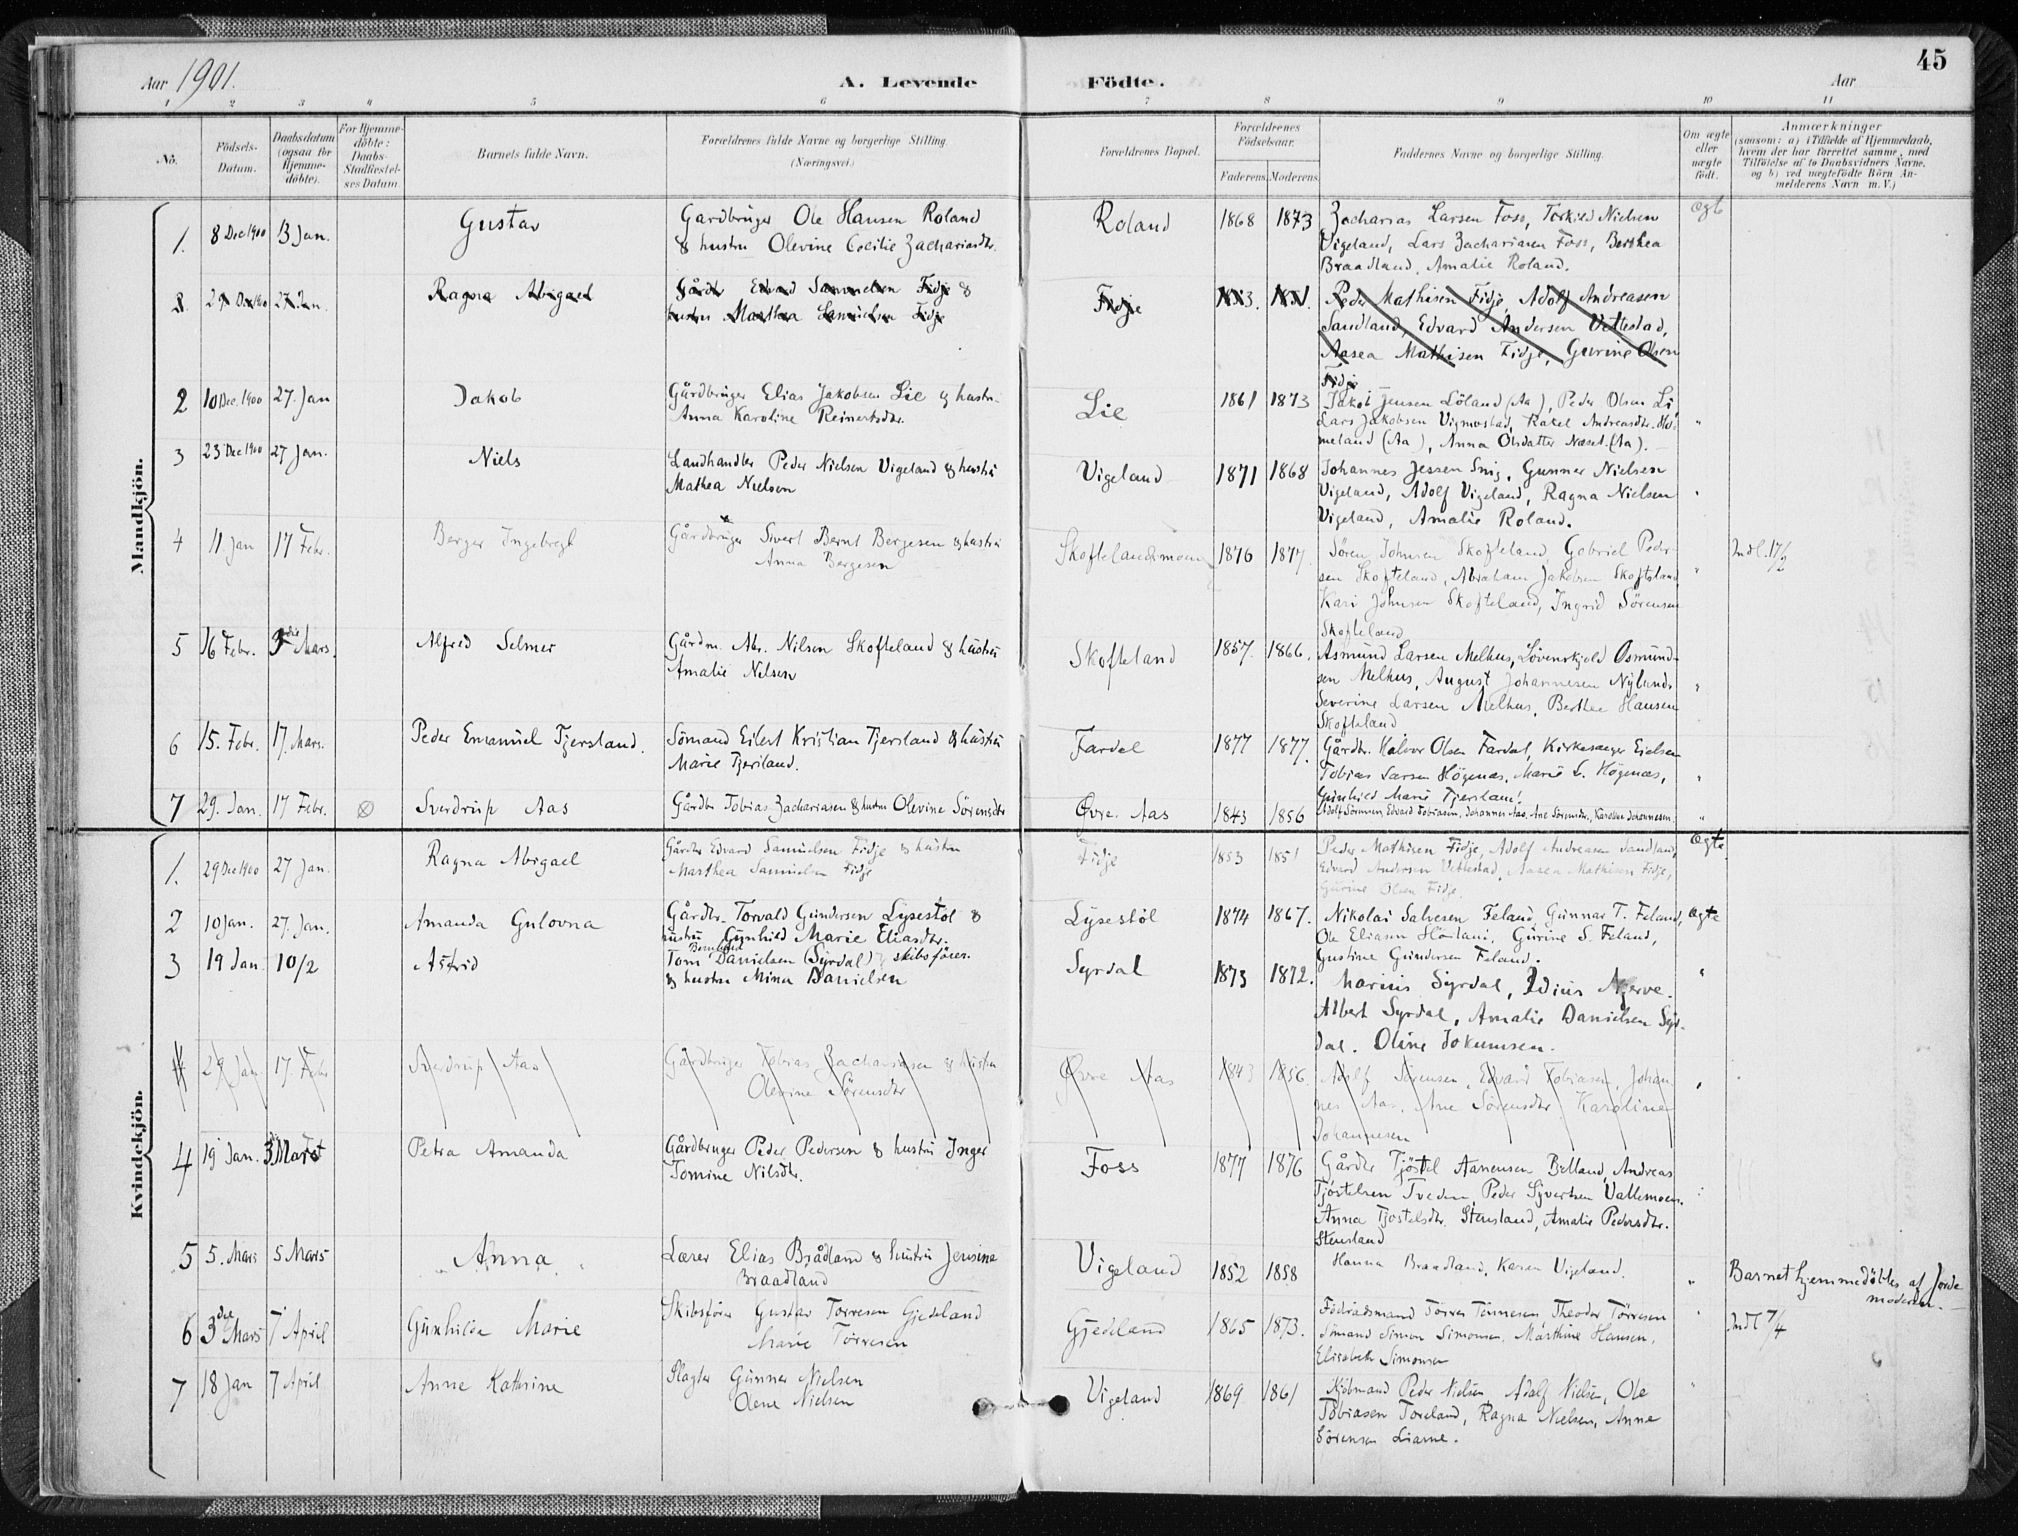 45
Aar 1901.
A. Levende Födte.
Aar
1 2 3 4 5 6 7 8 9 10 11
No.
Födsels-Datum.
Daabsdatum (ogsaa for Hjemme-döbte).
For Hjemme-döbte: Daabs-Stadfæstel-ses Datum
Barnets fulde Navn.
Forældrenes fulde Navne og borgerlige Stilling.
(Næringsvei.)
Forældrenes Bopæl.
Forældrenes Födselsaar.
Faderens. Moderens.
Faddernes Navne og borgerlige Stilling.
Om ægte eller uægte födt.
Anmærkninger
(saasom: a) i Tilfælde af Hjemmedaab, hvem der har forrettet samme, med Tilföielse af to Daabsvidners Navne, og b) ved uægtefödte Börn An-melderens Navn m.V.)
Mandkjön.
1. 8 Dec 1900 13 Jan. Gustav Gardbruger Ole Hansen Roland Roland 1868 1873 Zacharias Larsen Foss, Torkild Nielsen ægte
& hustru Olevine Cecilie Zachariasdtr. Vigeland, Lars Zachariasen Foss, Berthea
Braadland, Amalie Roland.
2 29 Dec 1900 27 Jan. Ragna Abigael Gårdbr Edvard Samuelsen Fidje & Fidje 1853. 1851. Peder Mathisen Fidje, Adolf Andreasen
hustru Marthea Samuelsen Fidje Sandland, Edvard Andersen Vettestad,
Aasea Mathisen Fidje, Gurine Olsen
Fidje
2 10 Dec. 1900 27. Jan Jakob Gårdbruger Elias Jakobsen Lie & hustru Lie 1861 1873 Jakob Jensen Löland (Aa), Peder Olsen Li,
Anna Karoline Reinertsdtr. Lars Jakobsen Vigmostad, Rakel Andreasdtr.
meland (Aa), Anna Olsdatter Næset. (Aa).
3 23 Dec 1900 27 Jan. Niels Landhandler Peder Nielsen Vigeland & hustru Vigeland 1871 1868 Johannes Jessen Snig, Gunner Nielsen
Mathea Nielsen Vigeland, Adolf Vigeland, Ragna Nielsen
Vigeland, Amalie Roland.
4 11 Jan 17 Febr. Berger Ingebregt Gårdbruger Sivert Bernt Bergesen & hustru Skoftelandsmoen 1876 1877. Sören Johnsen Skofteland, Gabriel Peder- Indl. 17/2
Anna Bergesen sen Skofteland, Abraham Jakobsen Skofteland
Kari Johnsen Skofteland, Ingrid Sörensen
Skofteland
5 16 Febr. 3die Mars. Alfred Selmer Gårdm. Abr. Nilsen Skofteland & hustru Skofteland 1857. 1866. Asmund Larsen Melhus, Lövenskjold Osmund-
Amalie Nilsen sen Melhus, August Johannesen Nylund,
Severine Larsen Melhus, Berthe Hansen
Skofteland
6 15. Febr. 17. Mars. Peder Emanuel Tjersland. Sömand Eilert Kristian Tjersland & hustru Fardal 1877 1877. Gårdbr. Halvor Olsen Fardal, Kirkesanger Eielsen
Marie Tjersland. Tobias Larsen Högenæs, Marie L. Högenæs,
Gunhild Marie Tjersland.
7 29. Jan. 17 Febr. Sverdrup Aas Gårdbr Tobias Zachariasen & hustru Olevine Sörensdtr Øvre Aas 1843 1856 Adolf Sörensen, Edvard Tobiasen, Johannes Aas, Ane Sörensdtr., Karoline Johannesen.
Kvindekjön.
1. 29 Dec 1900 27 Jan. Ragna Abigael Gårdbr Edvard Samuelsen Fidje & hustru Fidje 1853 1851 Peder Mathisen Fidje, Adolf Andreasen Sandland, ægte.
Marthea Samuelsen Fidje Edvard Andersen Vettestad, Aasea Mathisen Fidje,
Gurine Olsen Fidje.
2 10 Jan. 27. Jan. Amanda Gulovna Gårdbr. Torvald Gundersen Lysestöl & Lysestöl 1874 1867. Nikolai Salvesen Feland, Gunnar T. Feland, ægte
hustru Gunhild Marie Eliasdtr. Ole Eliasen, Gurine S. Feland,
Gustine Gundersen Feland.
3 19 Jan 10/2 Astrid Tom Bernhard Danielsen (Syrdal) skibsförer. Syrdal 1873 1872. Marius Syrdal, Idius
& hustru Mina Danielsen Albert Syrdal, Amalie Danielsen Syr-
dal. Oline Jokumsen.
4 29 Jan 17. Febr Sverdrup Aas Gårdbruger Tobias Zachariasen & hustru Øvre Aas 1843 1856. Adolf Sörensen, Edvard Tobiasen, Johan-
Olevine Sörensdtr nes Aas, Ane Sörensdtr Karoline
Johannesen
4 19 Jan. 3 Mars Petra Amanda Gårdbruger Peder Pedersen & hustru Inger Foss 1877 1876 Gårdbr Tjöstel Aanensen Belland, Andreas
Tomine Nilsdtr. Tjöstelsen Tveden, Peder Syvertsen Vallemoen.
Anna Tjostelsdtr. Stensland, Amalie Pedersdtr.
Stensland
5 5. Mars 5 Mars Anna Lærer Elias Brådland & hustru Jensine Vigeland 1852 1858 Hanna Braadland, Karen Vigeland. Barnet hjemmedöbtes af Jorde-
Braadland moderen.
6 3die Mars 7 April Gunhilda Marie Skibsförer Gustav Torresen Gjedeland Gjedeland 1865 1873. Torres Tönnesen, Theodor Törresen Indl 7/4
Marie Torresen Sömand Simon Simonsen, Marthine Hansen,
Elisabeth Simonsen
7 18 Jan 7 April Anne Kathrine Slagter Gunner Nielsen Vigeland 1869 1861 Kjöbmand Peder Nielsen, Adolf Nielsen, Ole
Olene Nielsen Tobiasen Toreland, Ragna Nielsen, Anne
Sörensen Liarne.